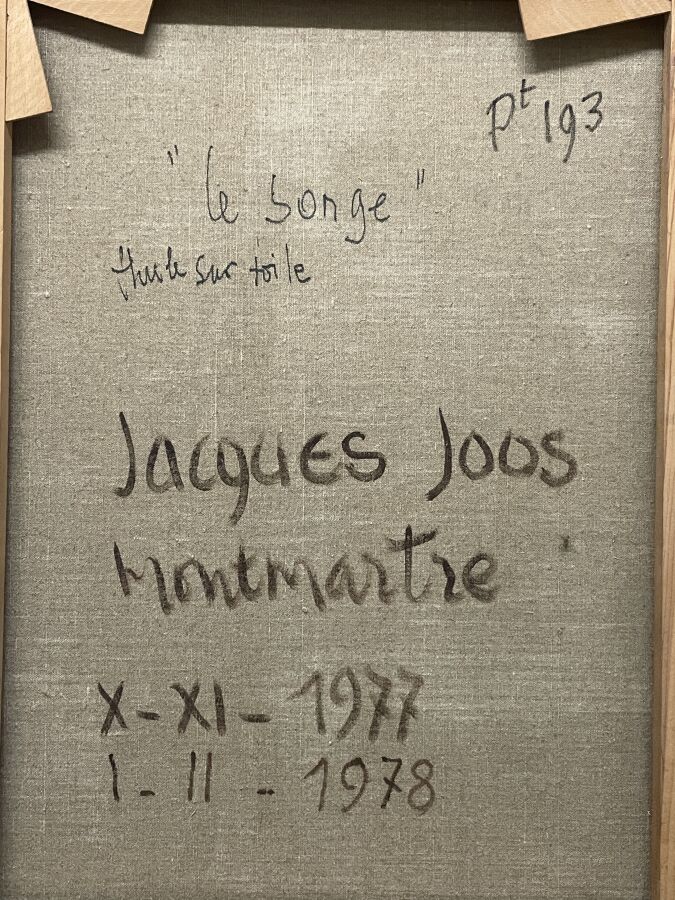 Pt 193
"le songe"
Huile sur toile
Jacques Joos
Montmartre
X - XI - 1977
I - II - 1978